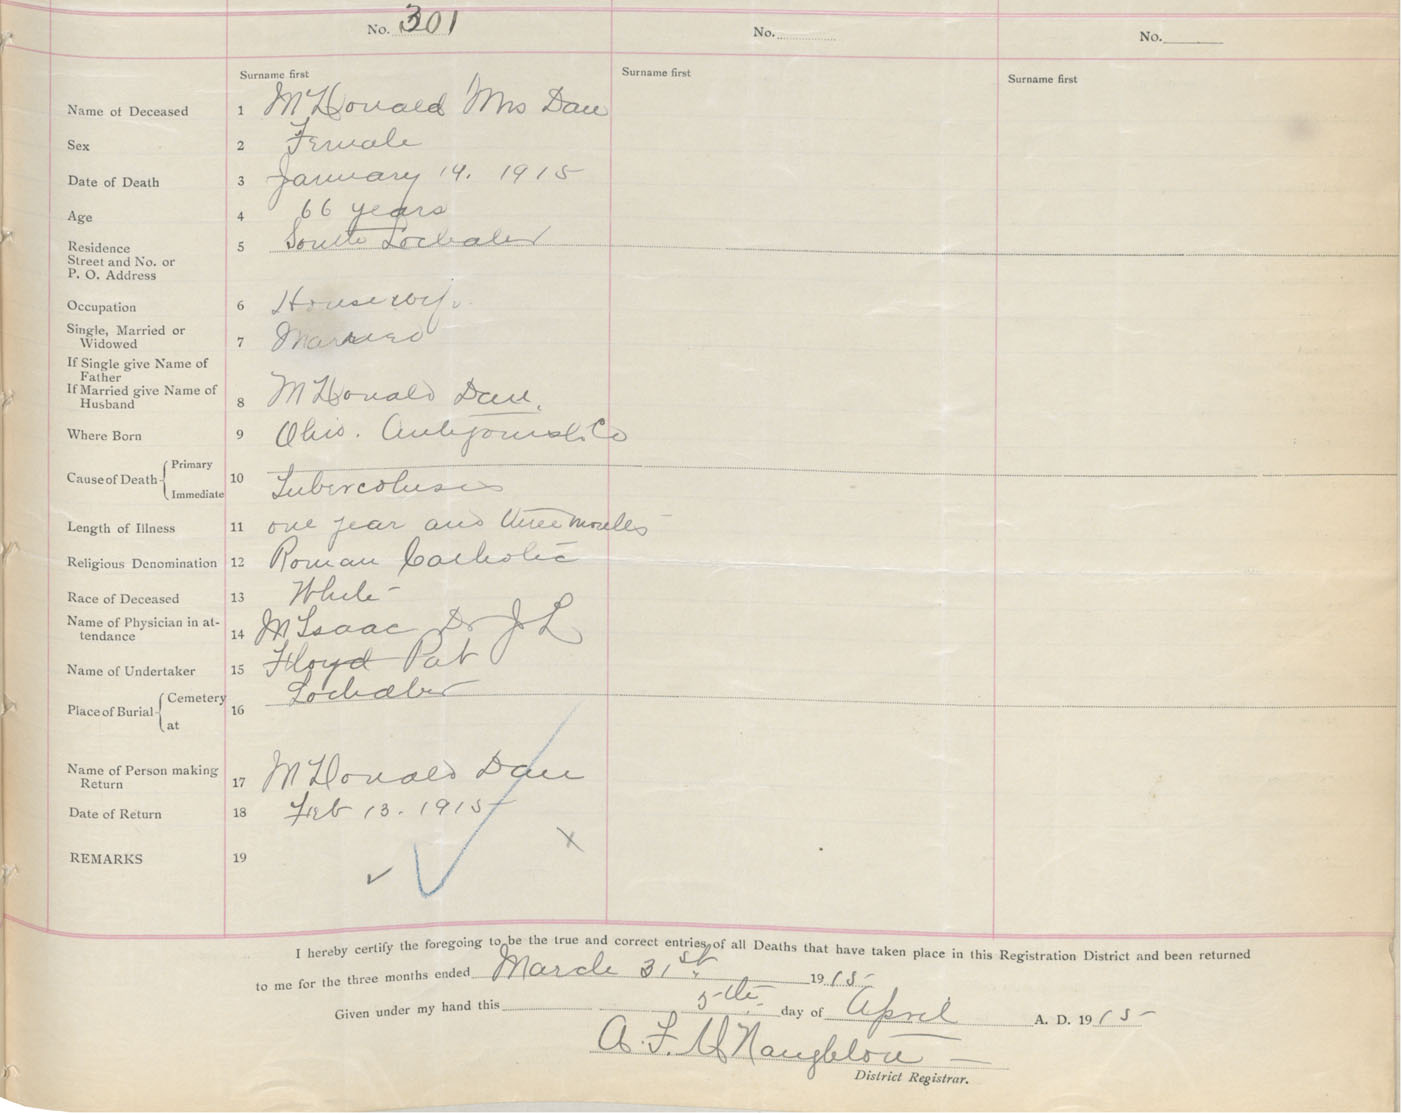 No. 301 No. No.
Surname first Surname first Surname first
Name of Deceased 1 McDonald Mrs Dan
Sex 2 Female
Date of Death 3 January 14. 1915
Age 4 66 years
Residence 5 South Lochaber
Street and No. or
P. O. Address
Occupation 6 Housewife
Single, Married or
Widowed 7 Married
If Single give Name of
Father
If Married give Name of
Husband 8 McDonald Dan.
Where Born 9 Ohio. Antigonish Co
Cause of Death { Primary
Immediate 10 Tuberculosis
Length of Illness 11 one year and three months
Religious Denomination 12 Roman Catholic
Race of Deceased 13 White
Name of Physician in at-
tendance 14 McIsaac Dr J L
Name of Undertaker 15 Floyd Pat
Place of Burial { Cemetery
at 16 Lochaber
Name of Person making
Return 17 McDonald Dan
Date of Return 18 Feb 13. 1915
REMARKS 19
I hereby certify the foregoing to be the true and correct entries of all Deaths that have taken place in this Registration District and been returned
to me for the three months ended March 31st 1915
Given under my hand this 5th day of April A. D. 1915
A. F. McNaughton
District Registrar.